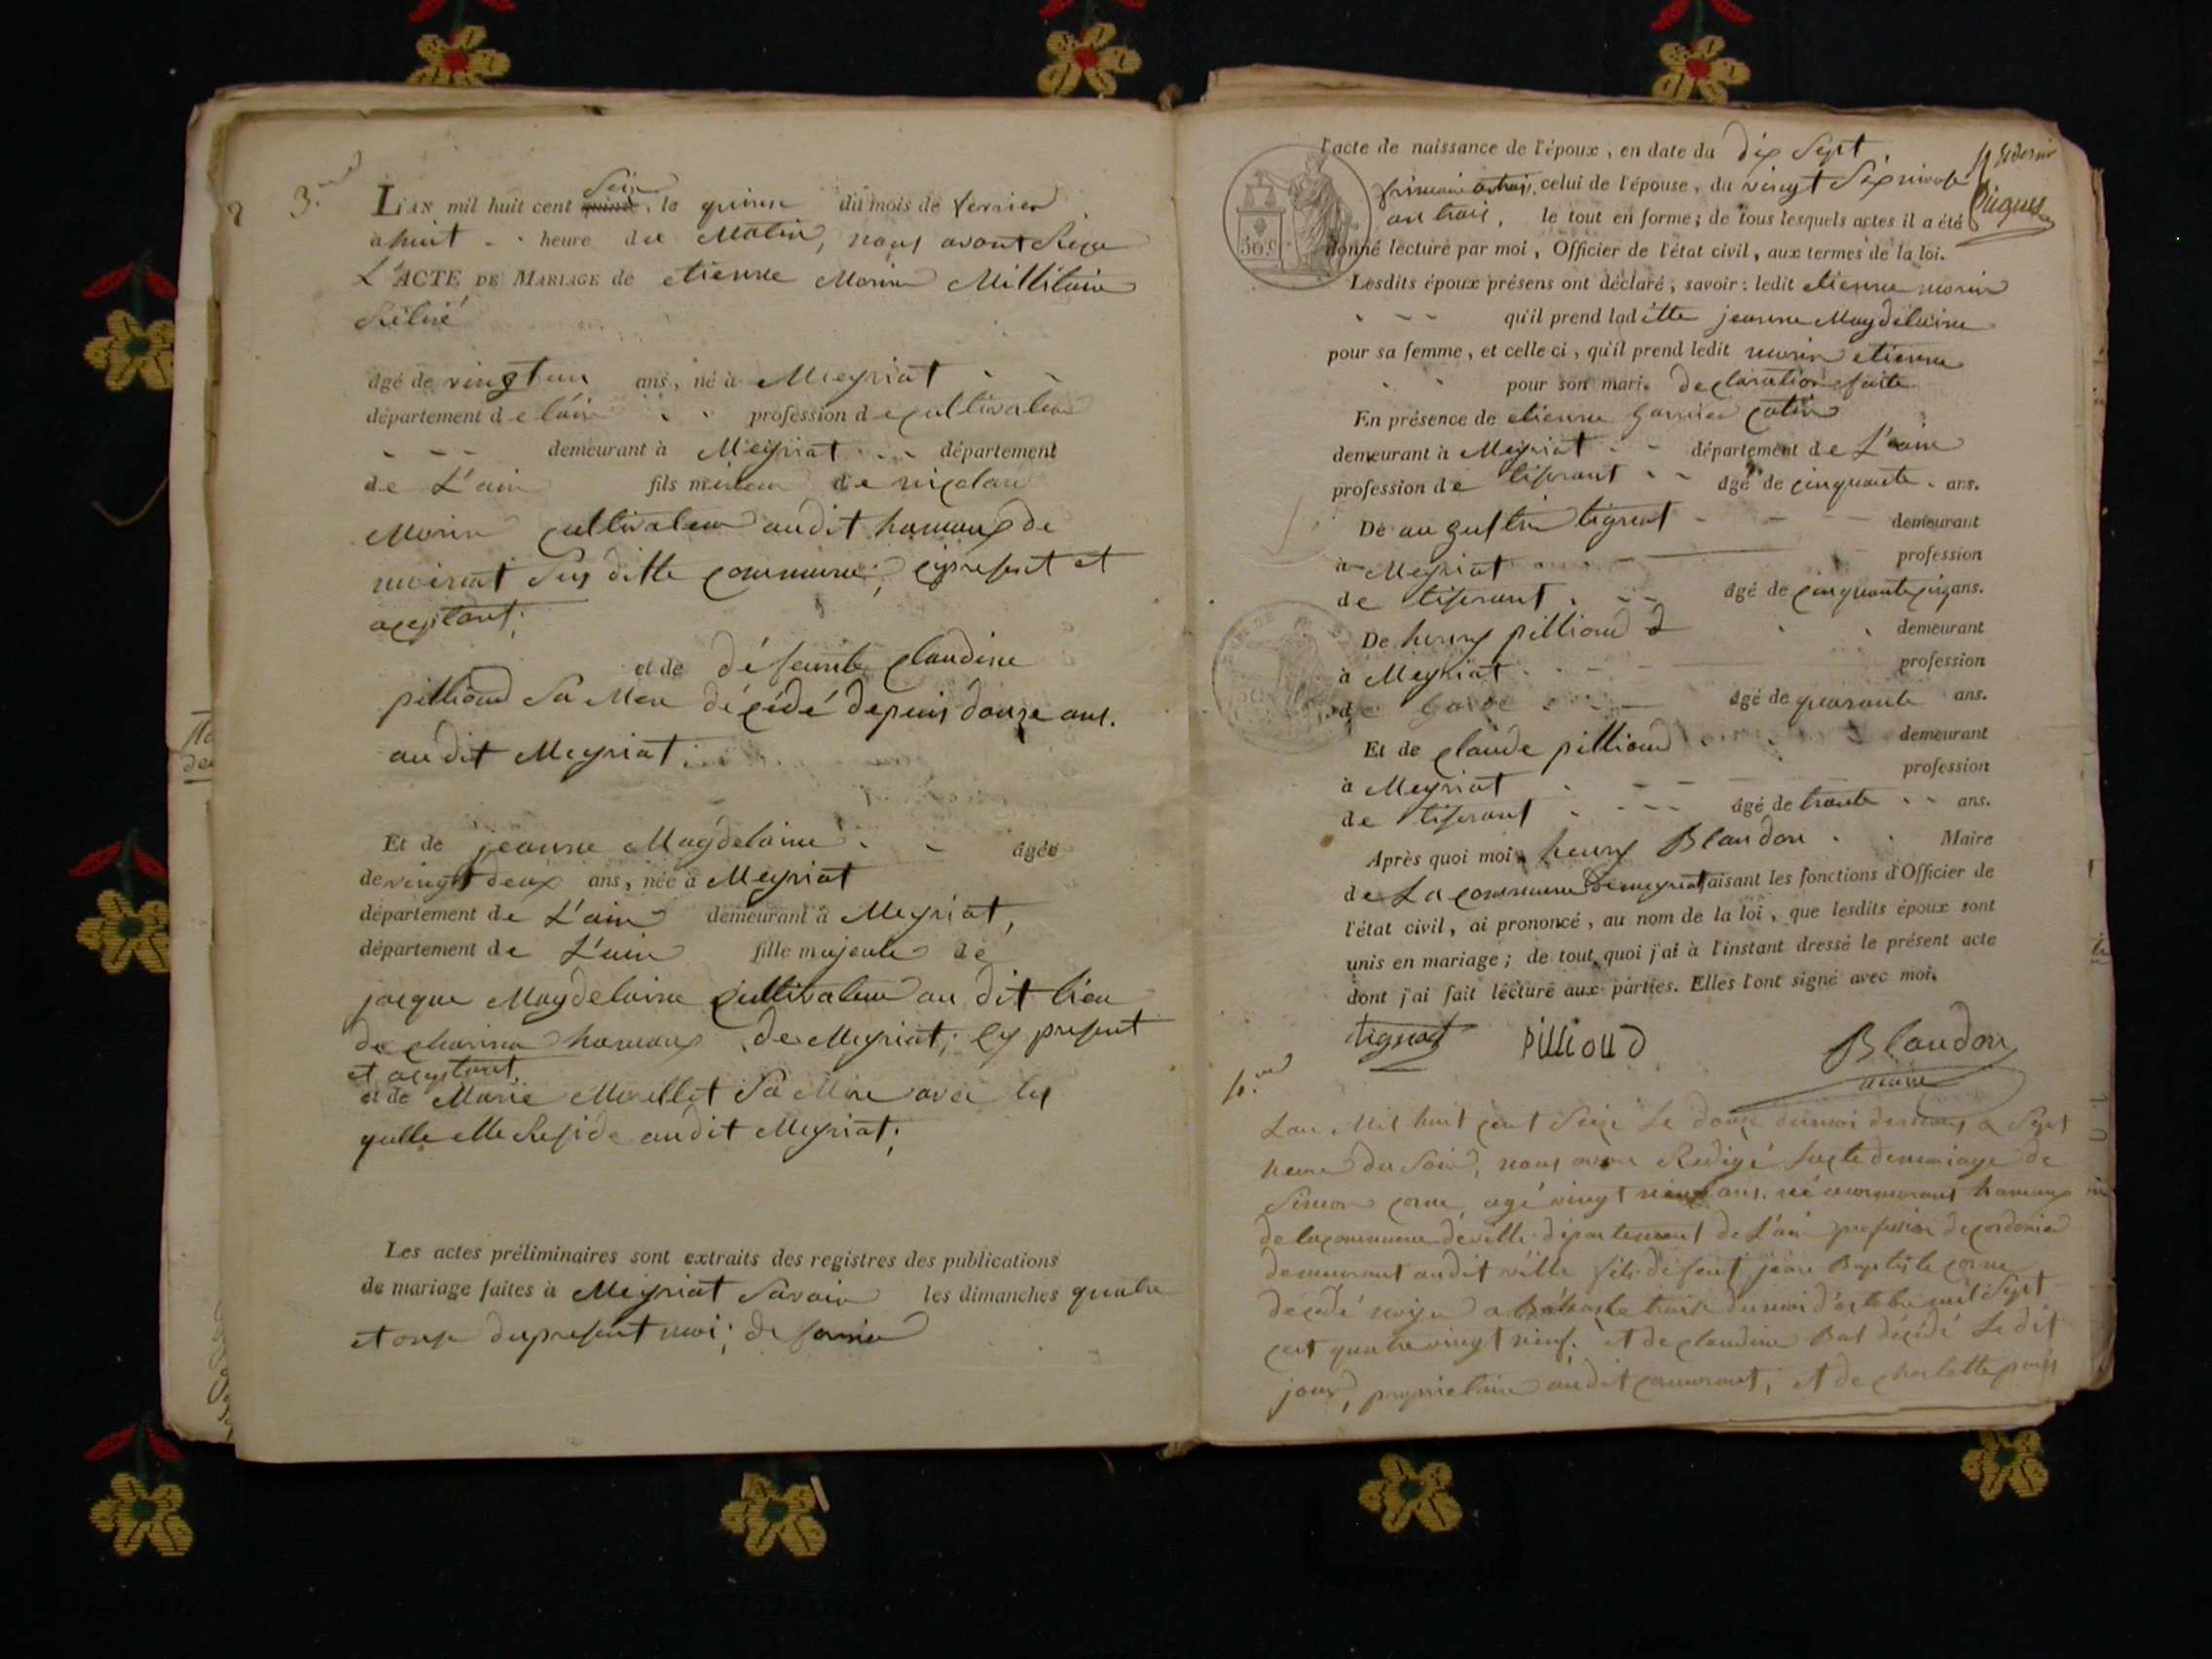 3.me
L'AN mil huit cent quinze Seize, le quinze du mois de fevrier
a huit heure du Matin, nous avont
L'ACTE DE MARIAGE de etienne Morin Millitaire
Retiré
âgé de vingt un ans, né à Meyriat
département de l'ain profession de cultivateur
demeurant à Meyriat département
de L'ain fils mineur de nicolau
Morin cultivateur audit hamaux de
Sus ditte commune; cy present et
aceptant;
et de défeunte claudine
pillioud Sa Mere décédé depuis douze ans.
au dit Meyriat.
Et de jeanne Magdelaine âgée
de vingt deux ans, née à Meyriat
département de L'ain demeurant à Meyriat,
département de L'ain fille majeure de
jacque Magdelaine cultivateur au dit lieu
de hamaux de Meyriat; cy present
et aceptant,
et de Marie Morellet Sa Mere avec les
quelle elle Reside audit Meyriat;
Les actes préliminaires sont extraits des registres des publications
de mariage faites à Meyriat Savoir les dimanches quatre
et onze du present moi; de
l'acte de naissance de l'époux, en date du dix Sept
frimaire an trois, celui de l'épouse, du vingt Six nivose
an trois, le tout en forme; de tous lesquels actes il a été
donné lecture par moi, Officier de l'état civil, aux termes de la loi.
50 c
Lesdits époux présens ont déclaré, savoir: ledit etienne morin
qu'il prend laditte jeanne Magdelaine
pour sa femme, et celle ci, qu'il prend ledit morin etienne
pour son mari. declaration faite
En présence de etienne
demeurant à Meyriat département de L'ain
profession de tiserant âgé de cinquante ans.
De augustin tignat demeurant
à Meyriat profession
de tiserant âgé de cinquante ans.
De henry pillioud demeurant
à Meyriat profession
de âgé de quarante ans.
Et de claude pillioud demeurant
à Meyriat profession
de tiserant âgé de trante ans.
Après quoi moi henry Blaudon Maire
de La commune de meyriat faisant les fonctions d'Officier de
l'état civil, ai prononcé, au nom de la loi, que lesdits époux sont
unis en mariage; de tout quoi j'ai à l'instant dressé le présent acte
dont j'ai fait lecture aux parties. Elles l'ont signé avec moi.
tignat PilliouD Blaudon
maire
Lan Mil huit cent Seize Le douze du moi de mars a Sept
heure du Soir, nous avons Redigé lacte de mariage de
Simon corne, agé vingt neuf ans. né a cormorant hamaux
de la commune de ville département de L'ain profession de cordonier
demeurant audit ville fils de feut jean Baptiste corne
décédé a le treize du moi d'octobre mil Sept
cent quatre vingt neuf. et de claudine Bat décédé Le dit
jour, proprietaire audit cormorant, et de charlotte